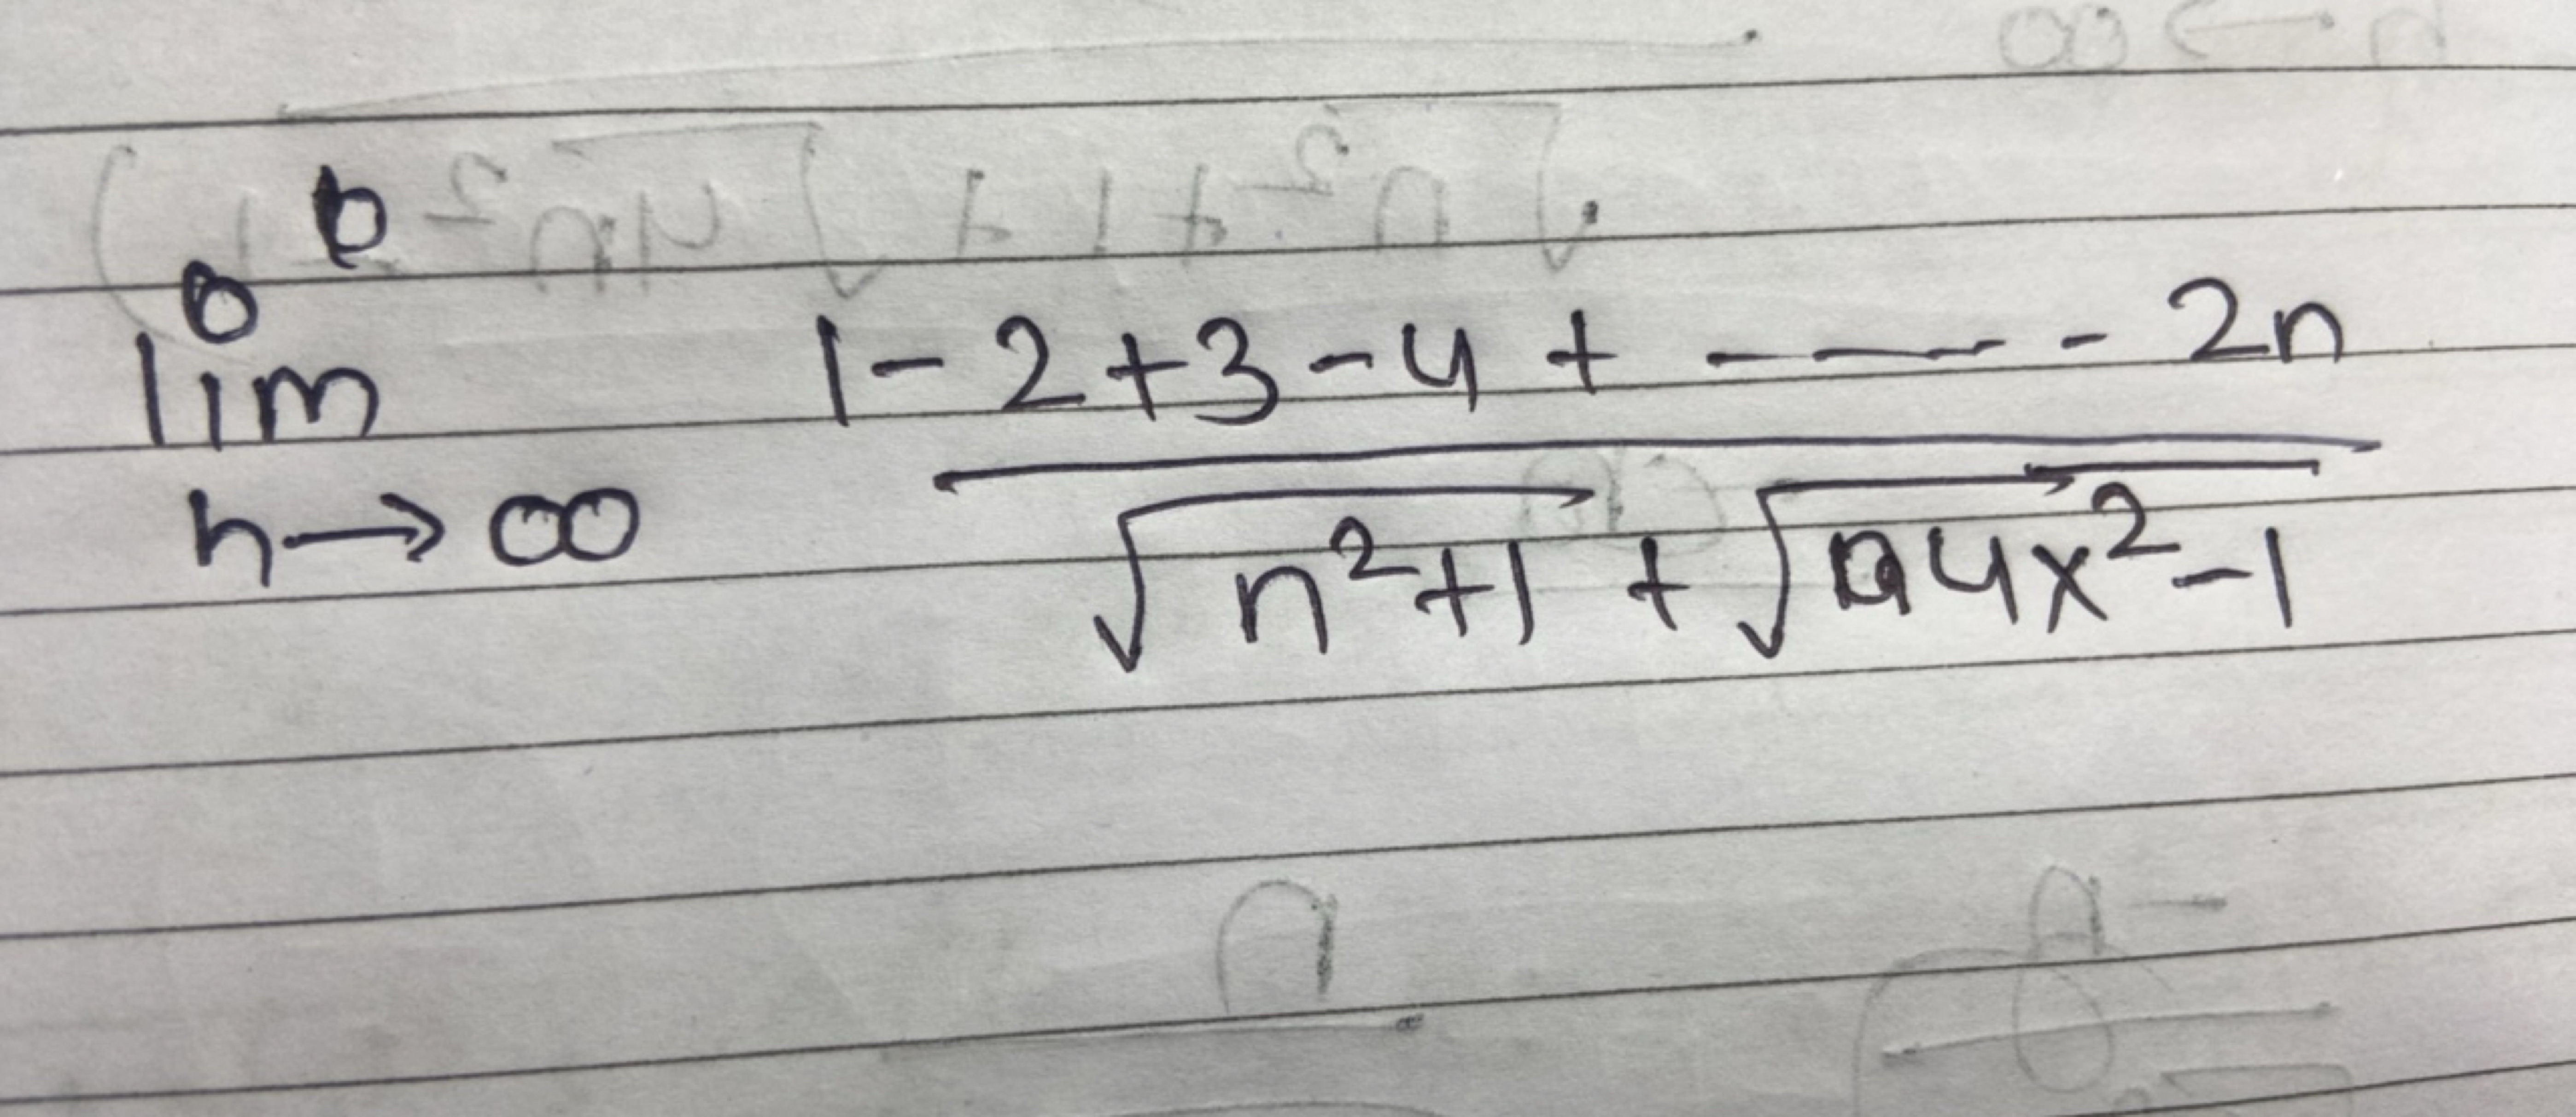 b
lim 1 - 2 + 3 - 4 + ----- - 2n
n → ∞ √(n²+1) + √(4x²-1)